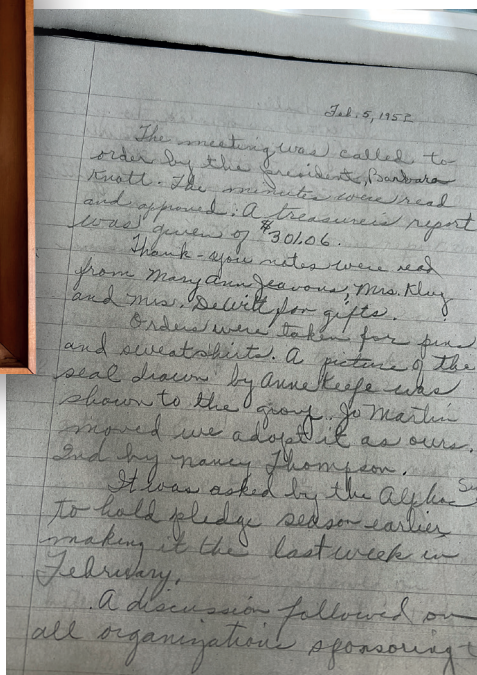 Feb. 5, 1952
The meeting was called to
order by the president, Barbara
Knott. The minutes were read
and approved. A treasurer's report
was given of $301.06.
Thank-you notes were read
from Mary Ann Jeavons, Mrs. Klug
and Mrs. DeWilt for gifts.
Orders were taken for pins
and sweatshirts. A picture of the
seal drawn by Anne Keefe was
shown to the group. Jo Martin
moved we adopt it as ours.
2nd by Nancy Thompson.
It was asked by the Alpha
to hold pledge season earlier,
making it the last week in
February.
A discussion followed on
all organizations sponsoring